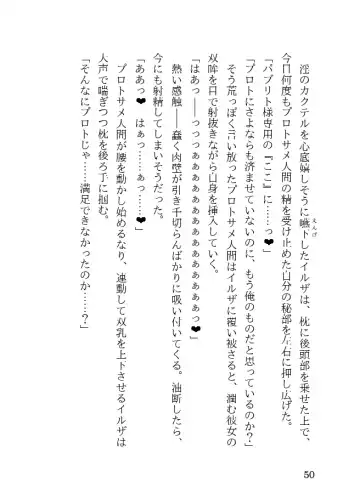 淫のカクテルを心底嬉しそうに嚥下したイルザは、枕に後頭部を乗せた上で、
えんげ
今日何度もプロトサメ人間の精を受け止めた自分の秘部を左右に押し広げた。
「パブリト様専用の『ここ』に……っ❤」
「プロトにさよならも済ませていないのに、もう俺のものだと思っているのか?」
そう荒っぽく言い放ったプロトサメ人間はイルザに覆い被さると、潤む彼女の
双眸を目で射抜きながら自身を挿入していく。
「はあっ――っっっぁぁぁぁぁぁぁぁぁぁぁぁっ❤」
熱い感触――蠢く肉壁が引き千切らんばかりに吸い付いてくる。油断したら、
今にも射精してしまいそうだった。
「ああっ❤ はぁっ……ぁっ……❤」
プロトサメ人間が腰を動かし始めるなり、連動して双乳を上下させるイルザは
大声で喘ぎつつ枕を後ろ手に掴む。
「そんなにプロトじゃ……満足できなかったのか……?」
50